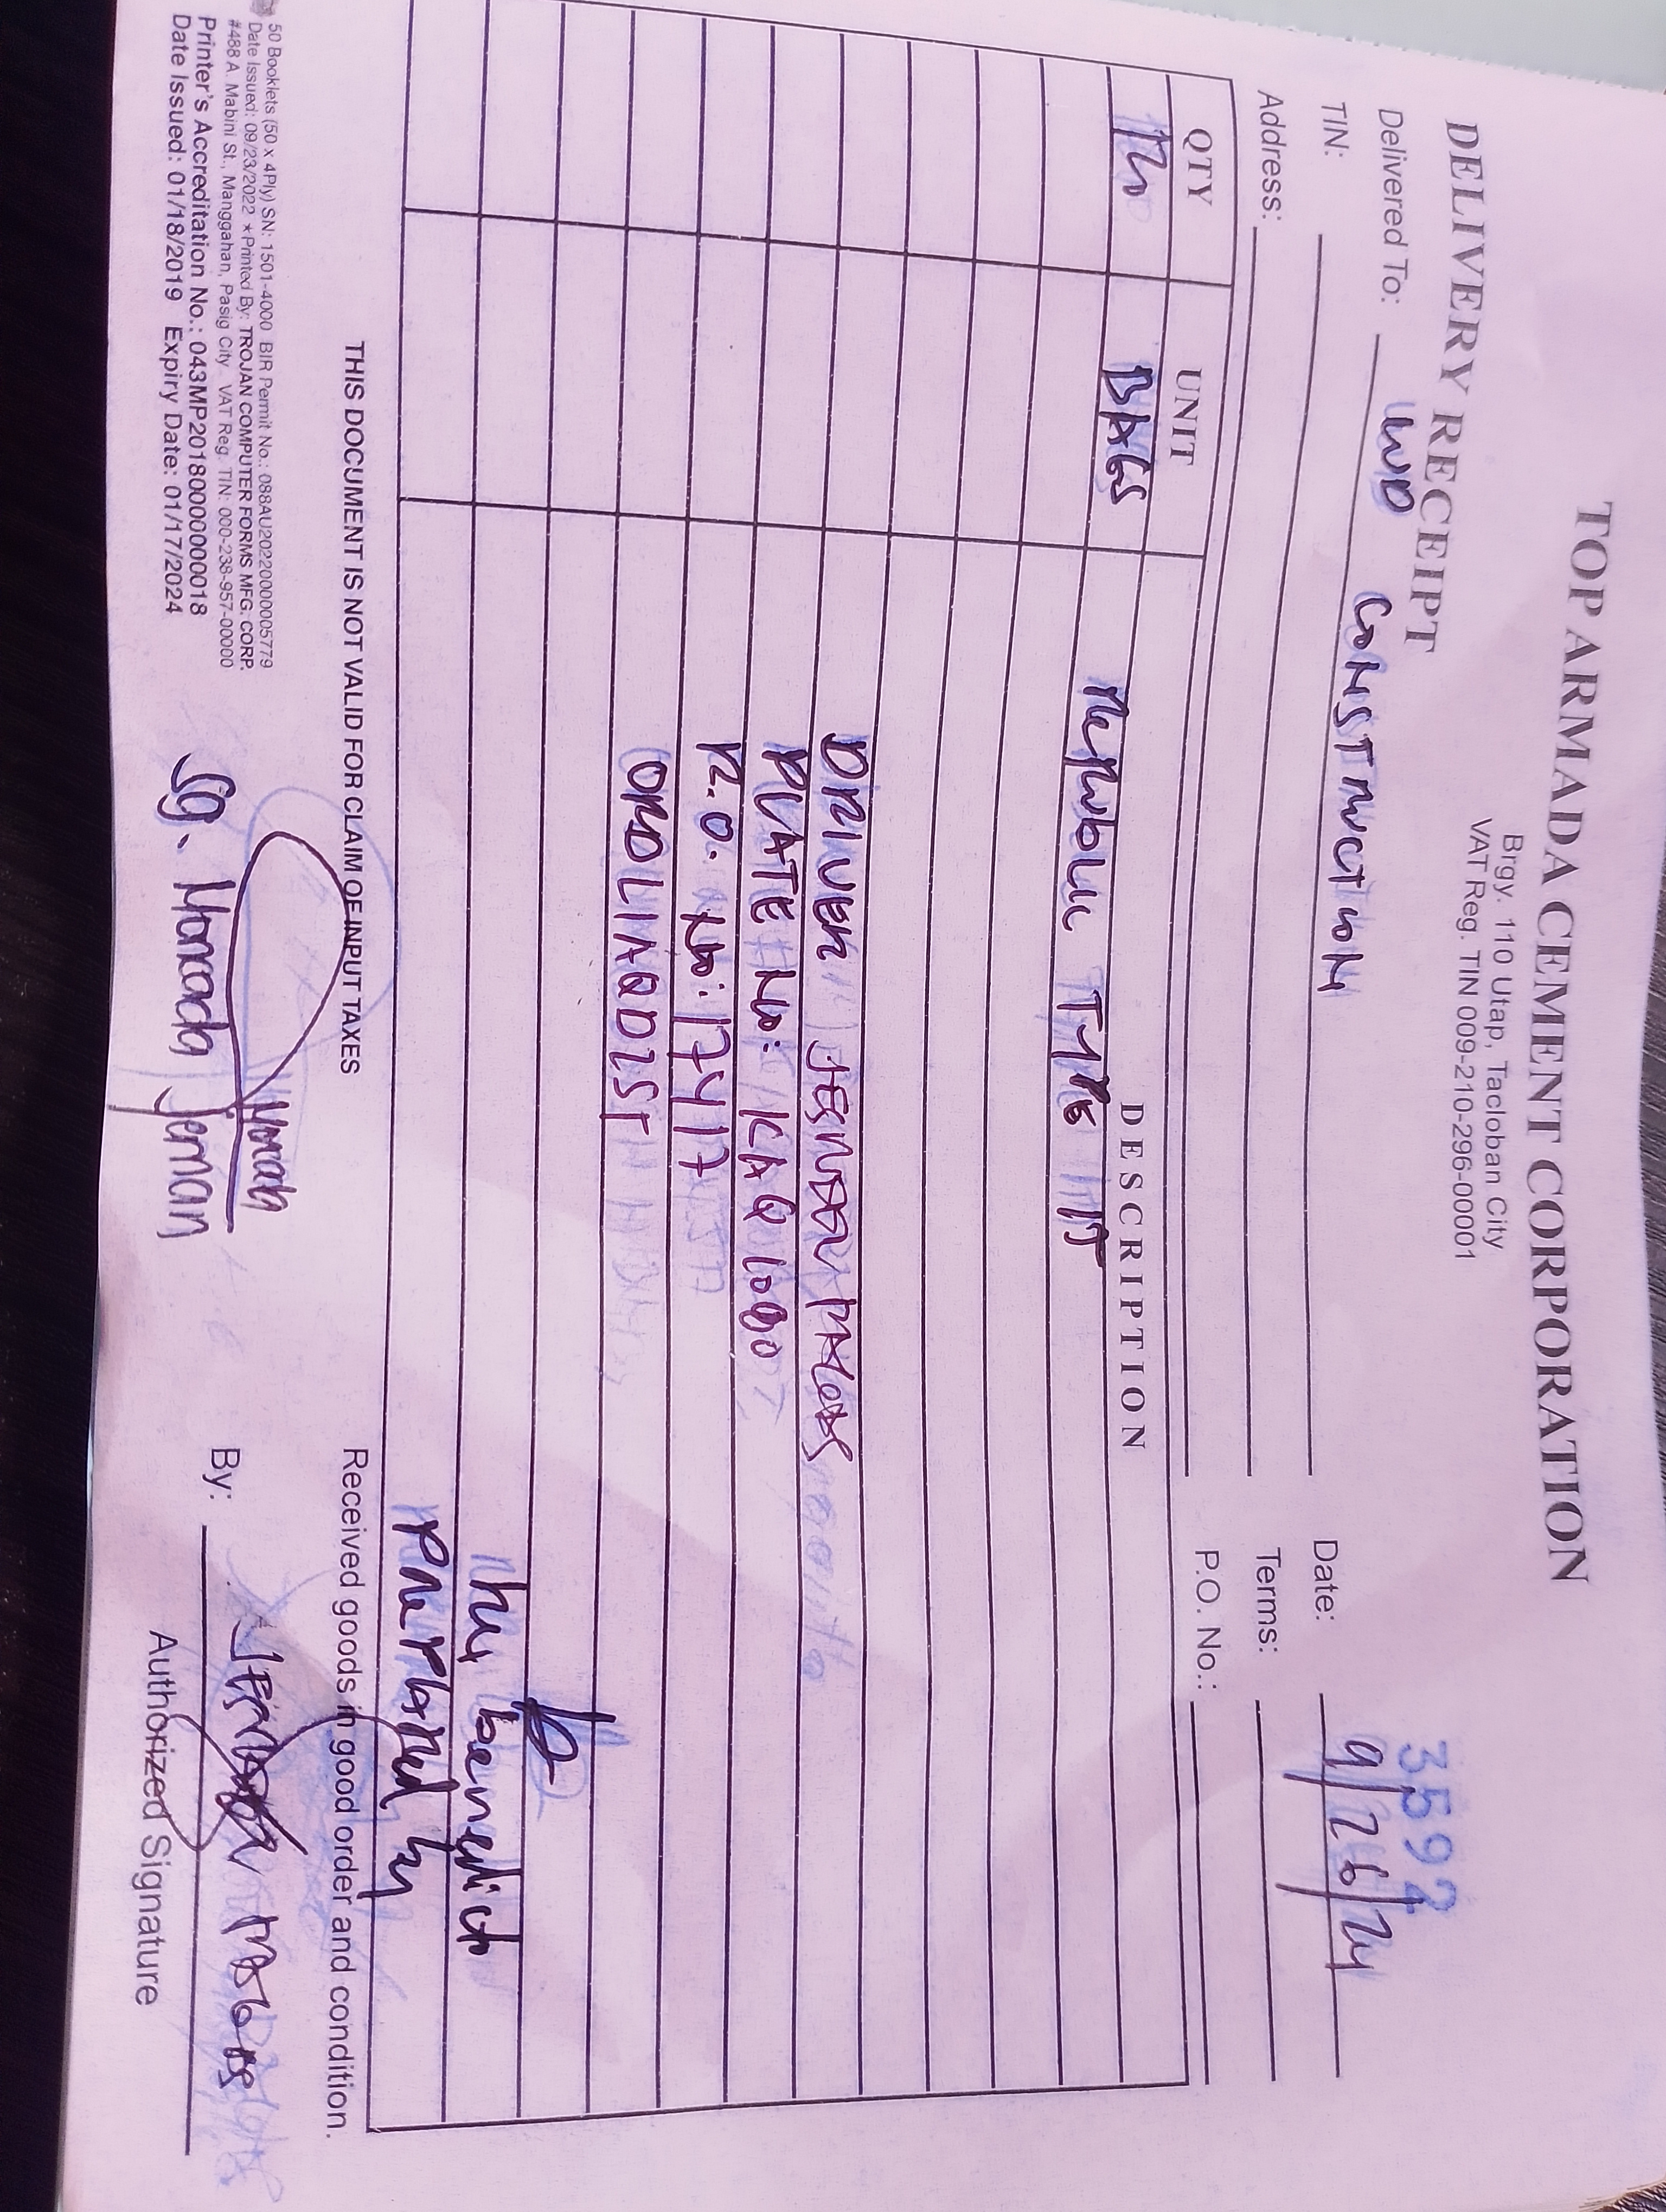 TOP ARMADA CEMENT CORPORATION
Brgy. 110 Utap, Tacloban City
VAT Reg. TIN 009-210-296-00001
DELIVERY RECEIPT
3592
Delivered To: CONSTRUCTION
Date: 9/26/24
TIN:
Terms:
Address:
P.O. No.:
QTY UNIT DESCRIPTION
BAGS REPUBLIC TYPE
DRIVER
PLATE NO: KAQ
P.O. NO: 17417
prepared by
THIS DOCUMENT IS NOT VALID FOR CLAIM OF INPUT TAXES
Received goods in good order and condition.
50 Booklets (50 x 4Ply) SN: 1501-4000 BIR Permit No.: 088AU20220000005779
Date Issued: 09/23/2022 ★Printed By: TROJAN COMPUTER FORMS MFG. CORP.
#488 A. Mabini St., Manggahan, Pasig City VAT Reg. TIN: 000-238-957-00000
Printer's Accreditation No.: 043MP20180000000018
Date Issued: 01/18/2019 Expiry Date: 01/17/2024
Sg. Moncada Jeman
By:
Authorized Signature